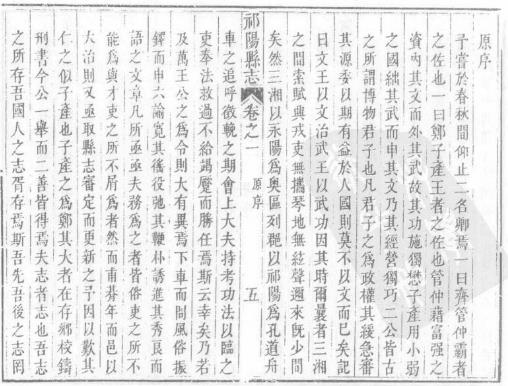 原序
子嘗於春秋間仰止二名卿焉一曰齊管仲霸者
之佐也一曰鄭子產王者之佐也管仲藉富强之
資內其文而外其武故其功施獨懋子產用小弱
之國絀其武而申其文乃其經營獨巧二公皆古
之所謂博物君子也凡君子之為政權其緩急審
其源委以期有益於人國則莫不以文而已矣記
曰文王以文治武王以武功因其時爾曩者三湘
之間索賦與戎吏無攜琴地無絃聲邇來旣少間
矣然三湘以永陽為奧區列郡以祁陽為孔道舟
祁陽縣志 卷之一 原序 五
車之追呼徵輓之期會上大夫持考功法以臨之
吏奉法救過不給竭蹷而勝任焉斯云幸矣乃若
及萬王公之為令則大有異焉下車而問風俗振
鐸而申六諭寬其徭役弛其鞭朴誘進其秀良而
語之文章凡所亟亟夫務為之者皆俗吏之所不
能為與才吏之所不屑為者然而甫朞年而邑以
大治則又亟取縣志審定而更新之予因以歎其
仁之似子產也子產之為鄭其大者在存鄉校鑄
刑書今公一舉而二善皆得焉夫志者志也吾志
之所存吾國人之志胥存焉斯吾先吾後之志罔